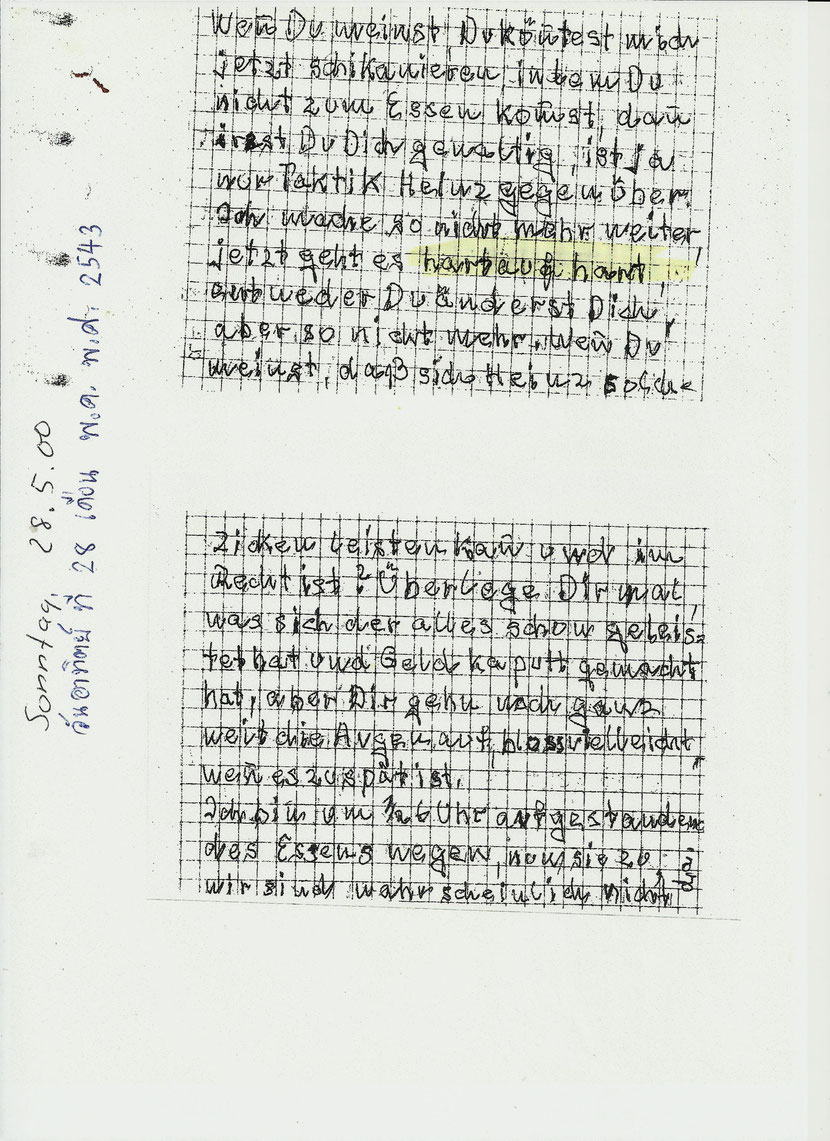 Weñ Du meinst Du köñtest mich
jetzt schikanieren, indem Du
nicht zum Essen kom̃st, dañ
irrst Du Dich gewaltig, ist ja
nur Taktik Heinz gegenüber.
Ich mache so nicht mehr weiter,
jetzt geht es hart auf hart,
entweder Du änderst Dich,
aber so nicht mehr. Weñ Du
meinst, daß sich Heinz solche
Zicken leisten kañ und im
Recht ist? Überlege Dir mal,
was sich der alles schon geleis=
tet hat und Geld kaputt gemacht
hat, aber Dir gehn noch ganz
weit die Augen auf, bloss vielleicht
weñ es zu spät ist.
Ich bin um ½6 Uhr aufgestanden
des Essens wegen, nun sie zu
wir sind wahrscheinlich nicht
da.
Sonntag, 28.5.00
วันอาทิตย์ ที่ 28 เดือน พ.ค. พ.ศ. 2543